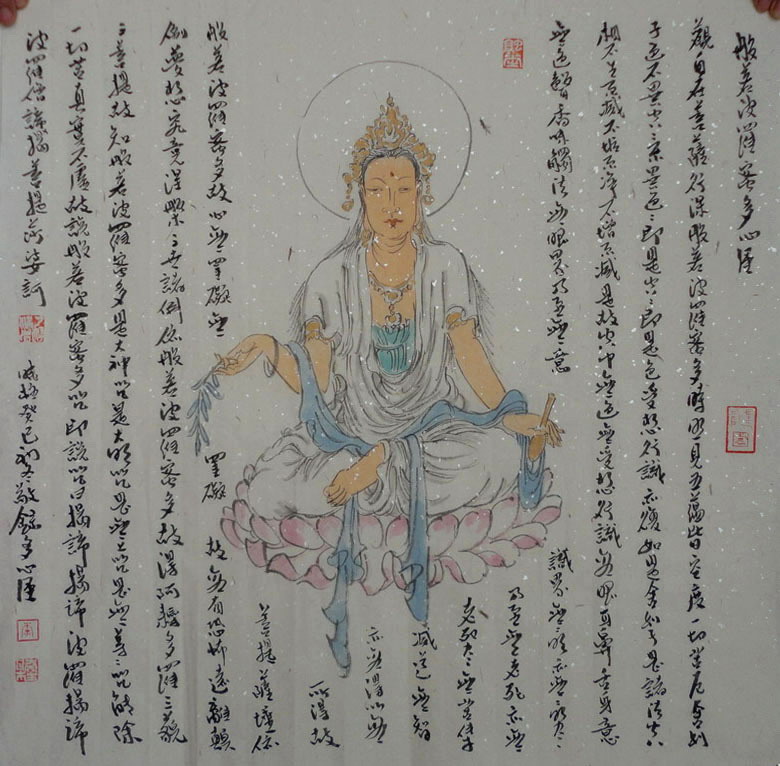 般若波羅蜜多心经
觀自在菩薩行深般若波羅蜜多時照見五蘊皆空度一切苦厄舍利
子色不異空〻不異色〻即是空〻即是色受想行識亦復如是舍利子是諸法空
相不生不滅不垢不淨不增不減是故空中無色無受想行識無眼耳鼻舌身意
無色聲香味觸法無眼界乃至無意
識界無無明亦無無明盡
乃至無老死亦無
老死盡無苦集
滅道無智
亦無得以無
所得故
菩提薩埵依
般若波羅蜜多故心無罣礙無
罣礙故無有恐怖遠離顛
倒夢想究竟涅槃三世諸佛依般若波羅蜜多故得阿耨多羅三藐
三菩提故知般若波羅蜜多是大神咒是大明咒是無上咒是無等〻咒能除
一切苦真實不虛故說般若波羅蜜多咒即說咒曰揭諦揭諦波羅揭諦
波羅僧諦揭菩提薩婆訶
歲癸巳初冬敬錄多心经